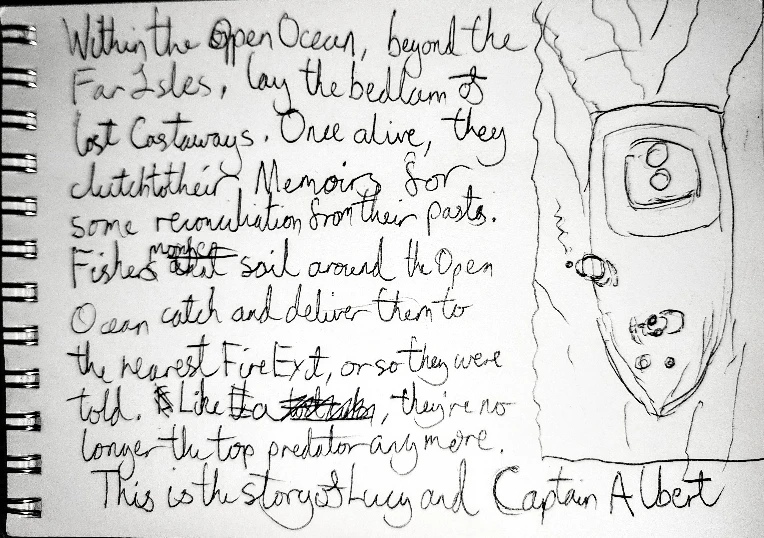 Within the Open Ocean, beyond the
Far Isles, lay the bedlam of
lost Castaways. Once alive, they
clutch to their Memoirs for
some reconciliation from their pasts.
Fishers
sail around the Open
Ocean catch and deliver them to
the nearest Fire Exit, or so they were
told. Like a , they're no
longer the top predator anymore.
This is the story of Lucy and Captain Albert